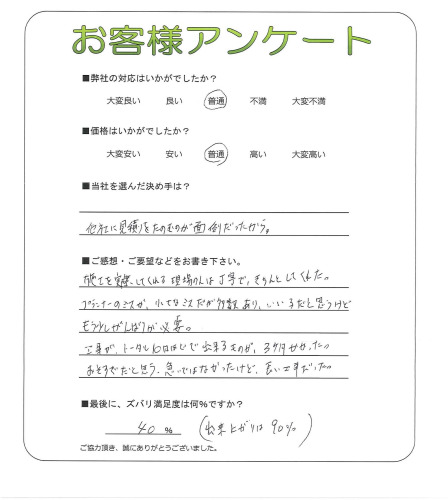 お客様アンケート
■弊社の対応はいかがでしたか?
大変良い 良い 普通 不満 大変不満
■価格はいかがでしたか?
大変安い 安い 普通 高い 大変高い
■当社を選んだ決め手は?
他社に見積りをたのむのが面倒だったから。
■ご感想・ご要望などをお書き下さい。
施工を実際してくれる現場の人は丁寧で、きちんとしてくれた。
プランナーのミスが、小さなミスだが多数あり、いい人だと思うけど
もう少しがんばりが必要。
工事が、トータル10日ほどで出来るものが、3ヶ月かかった。
おそすぎだと思う。急いではなかったけど、長い工事だった。
■最後に、ズバリ満足度は何%ですか?
40 % (出来上がりは90%)
ご協力頂き、誠にありがとうございました。